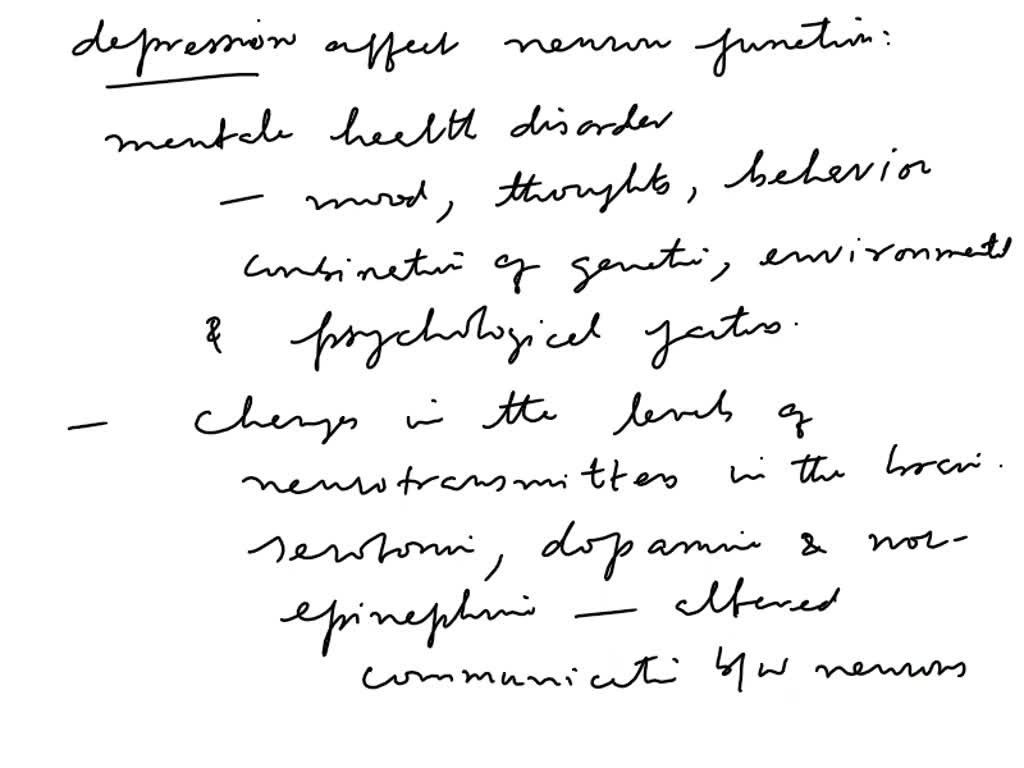 depression affect neuron function:
mental health disorder
— mood, thoughts, behavior
combination of genetic, environmental
& psychological factors.
— changes in the levels of
neurotransmitters in the brain.
serotonin, dopamine & nor-
epinephrine — altered
communication b/w neurons